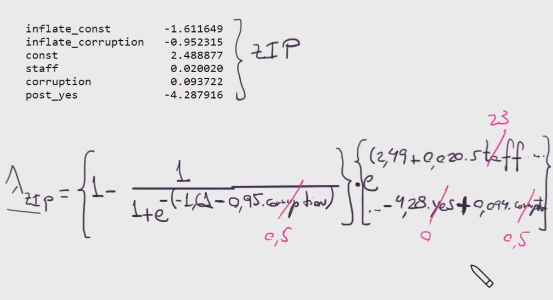 inflate_const -1.611649
inflate_corruption -0.952315
const 2.488877
staff 0.020020
corruption 0.093722
post_yes -4.287916
ZIP
23
λZIP = { 1 - 1 / 1+e^-(-1,61 - 0,95.corruption) } . e^{ (2,49+0,020.staff ...
... - 4,28.yes + 0,094.corrupt
0,5
0
0,5